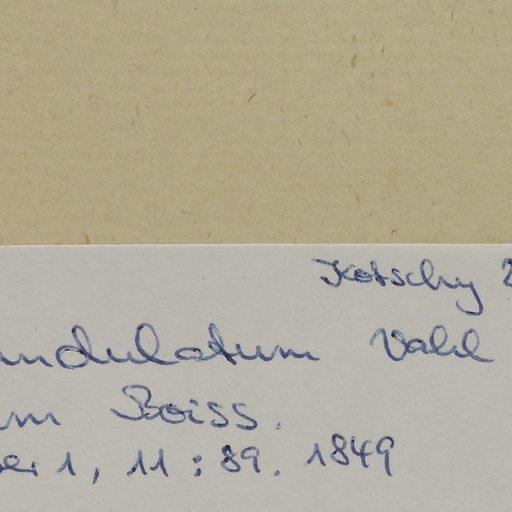 Kotschy 2
undulatum Vahl
um Boiss.
ser 1, 11 : 89. 1849